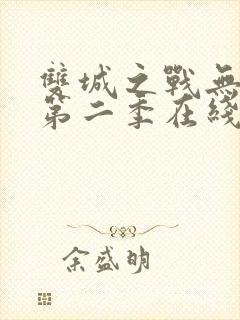 雙城之戰無
第二季在綫
余盛明